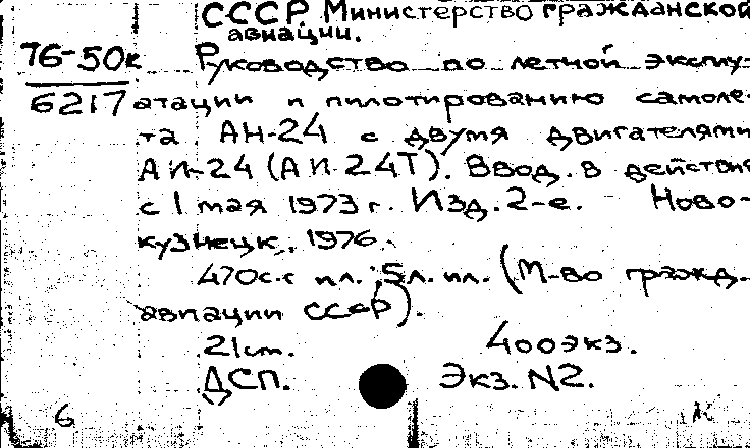 СССР. Министерство гражданской
авиации.
76-50к Руководство по летной эксплу-
6217 атации и пилотированию самоле-
та АН-24 с двумя двигателями
АИ-24 (АИ-24Т). Ввод. в действия
с 1 мая 1973 г. Изд. 2-е. Ново-
кузнецк, 1976.
470с. с ил.; 5л. ил. (М-во гражд.
авиации СССР).
21 см. 400 экз.
ДСП. Экз. N2.
6